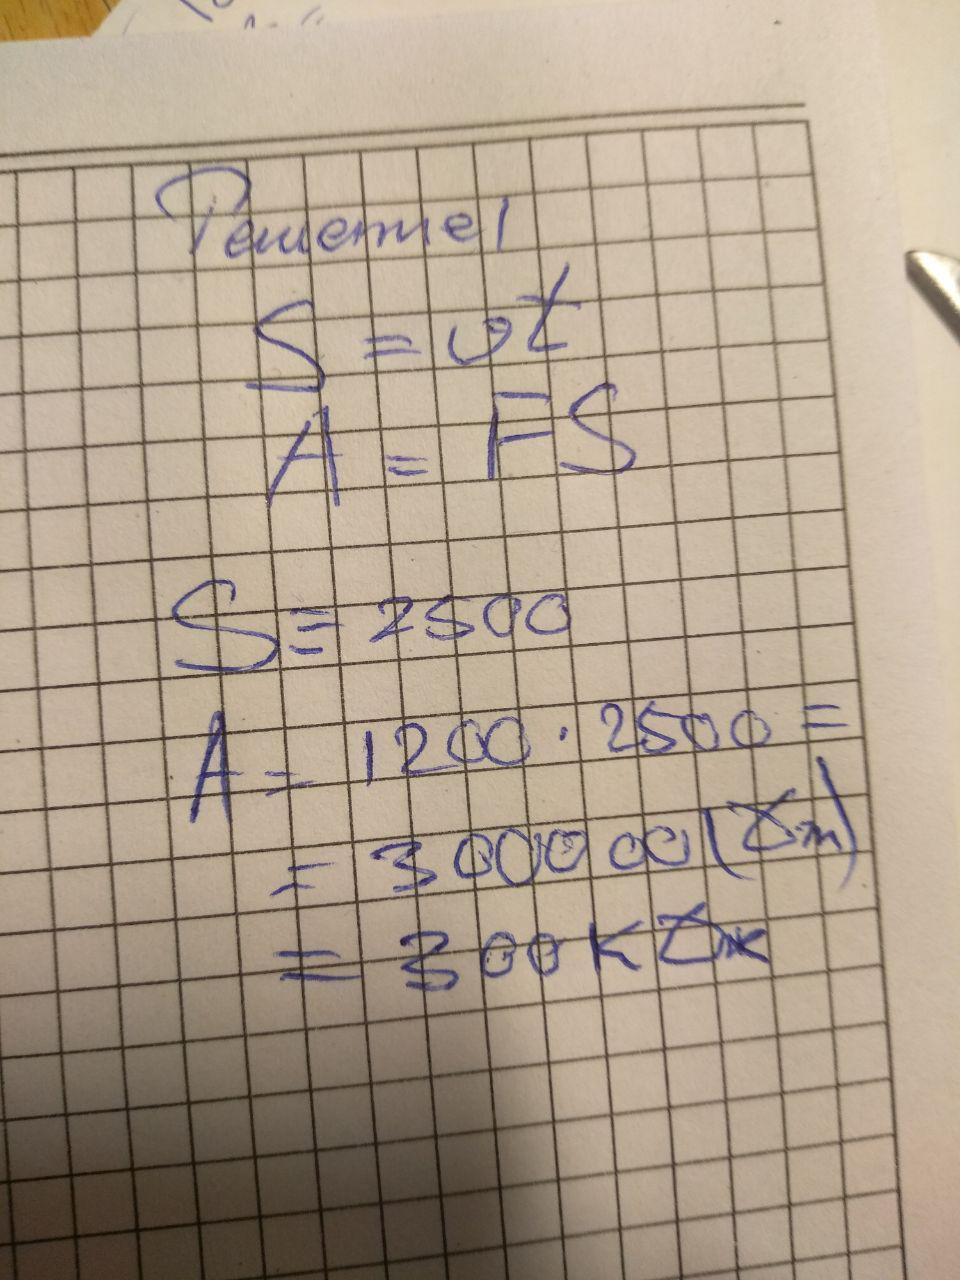 Решение
S = vt
A = FS
S = 2500
A = 1200 · 2500 =
= 3000000 (Дж)
= 300 кДж